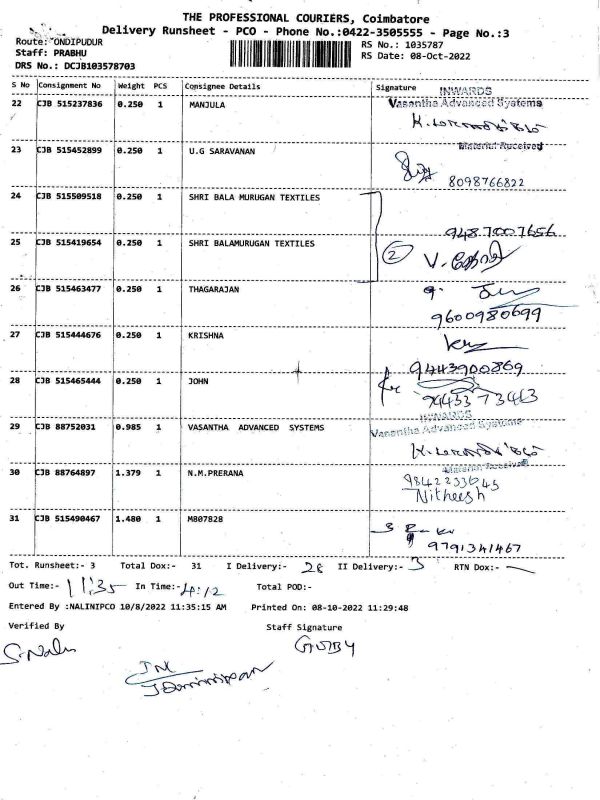 THE PROFESSIONAL COURIERS, Coimbatore
Delivery Runsheet - PCO - Phone No.:0422-3505555 - Page No.:3
Route: ONDIPUDUR
Staff: PRABHU
DRS No.: DCJB103578703
RS No.: 1035787
RS Date: 08-Oct-2022
S No Consignment No Weight PCS Consignee Details Signature
INWARDS
22 CJB 515237836 0.250 1 MANJULA Vasantha Advanced Systems
Material Received
23 CJB 515452899 0.250 1 U.G SARAVANAN
8098766822
24 CJB 515509518 0.250 1 SHRI BALA MURUGAN TEXTILES
9487007656
25 CJB 515419654 0.250 1 SHRI BALAMURUGAN TEXTILES 2
26 CJB 515463477 0.250 1 THAGARAJAN
9600980699
27 CJB 515444676 0.250 1 KRISHNA
9443900869
28 CJB 515465444 0.250 1 JOHN
INWARDS
29 CJB 88752031 0.985 1 VASANTHA ADVANCED SYSTEMS Vasantha Advanced Systems
Material Received
30 CJB 88764897 1.379 1 N.M.PRERANA 9842233645
Nitheesh
31 CJB 515490467 1.480 1 M807828
9791341467
Tot. Runsheet:- 3 Total Dox:- 31 I Delivery:- 28 II Delivery:- 3 RTN Dox:-
Out Time:- 11:35 In Time:- 4:12 Total POD:-
Entered By :NALINIPCO 10/8/2022 11:35:15 AM Printed On: 08-10-2022 11:29:48
Verified By Staff Signature
S.Nalini